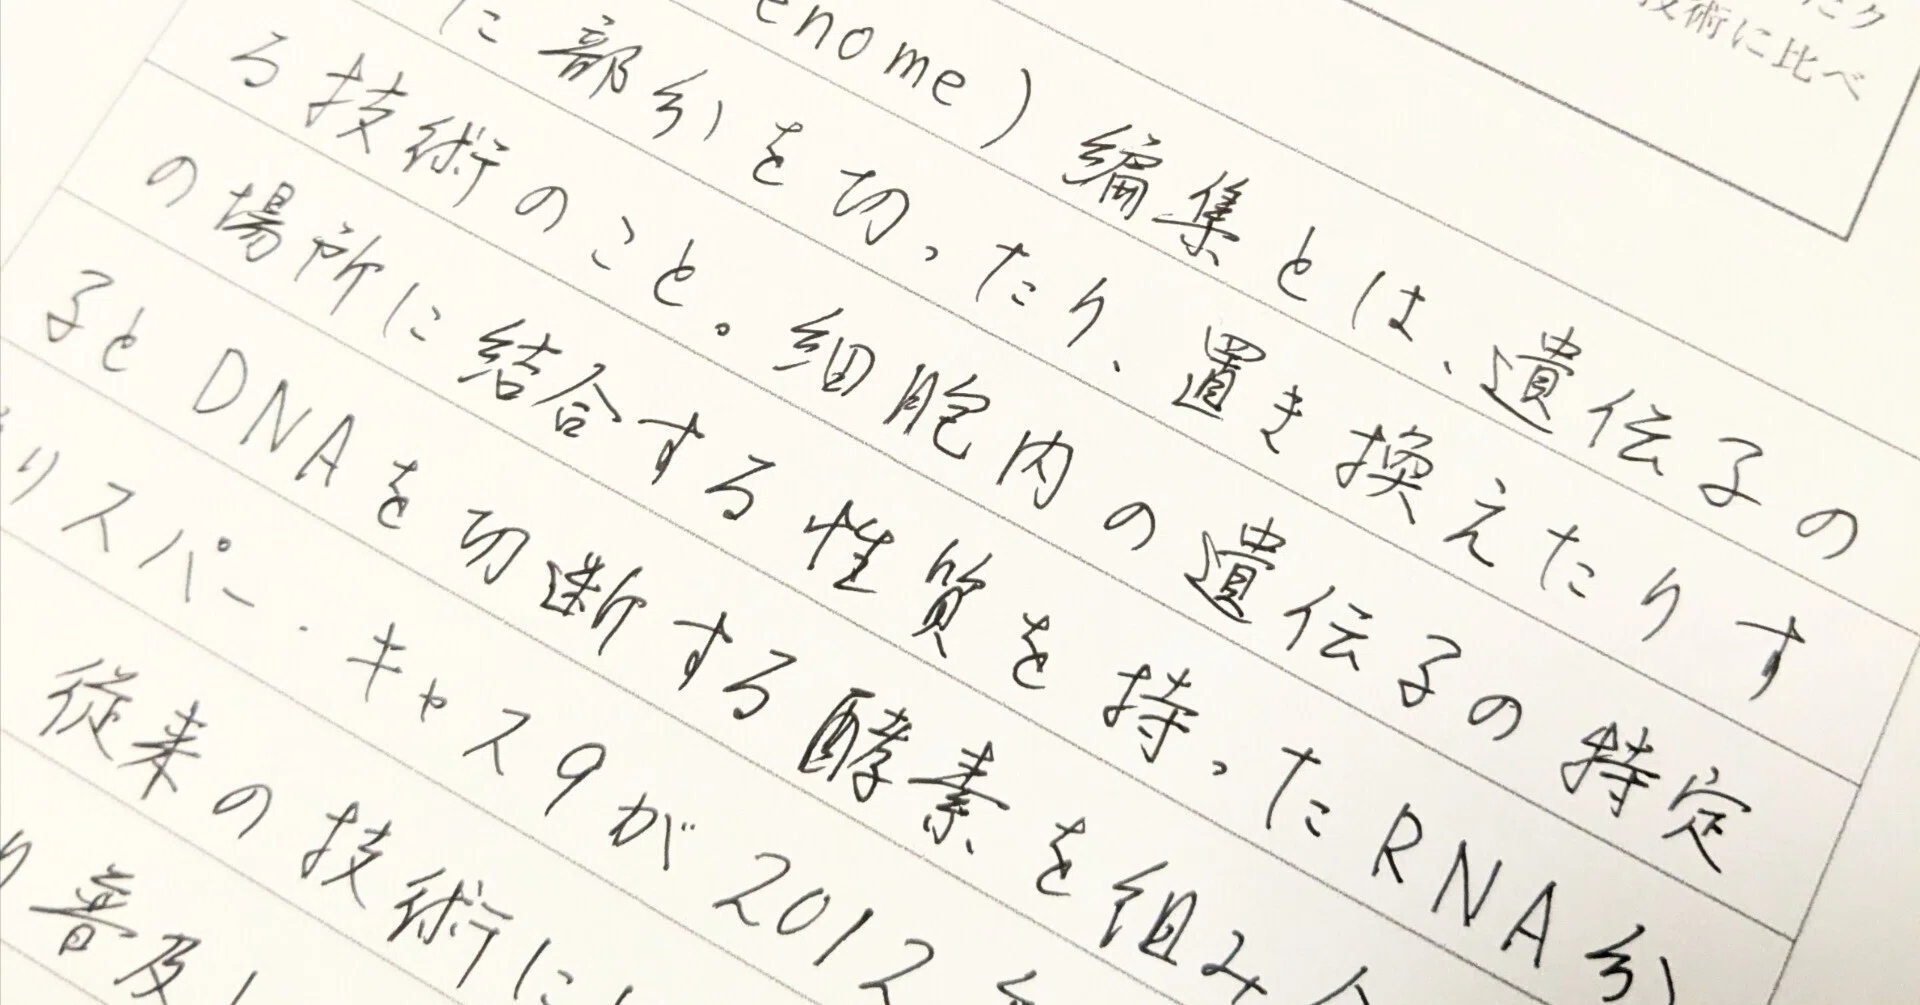 たク
技術に比べ
enome）編集とは、遺伝子の
に部分を切ったり、置き換えたりす
る技術のこと。細胞内の遺伝子の特定
の場所に結合する性質を持ったRNA分
子とDNAを切断する酵素を組み
リスパー・キャス9が2012
従来の技術に
り普及